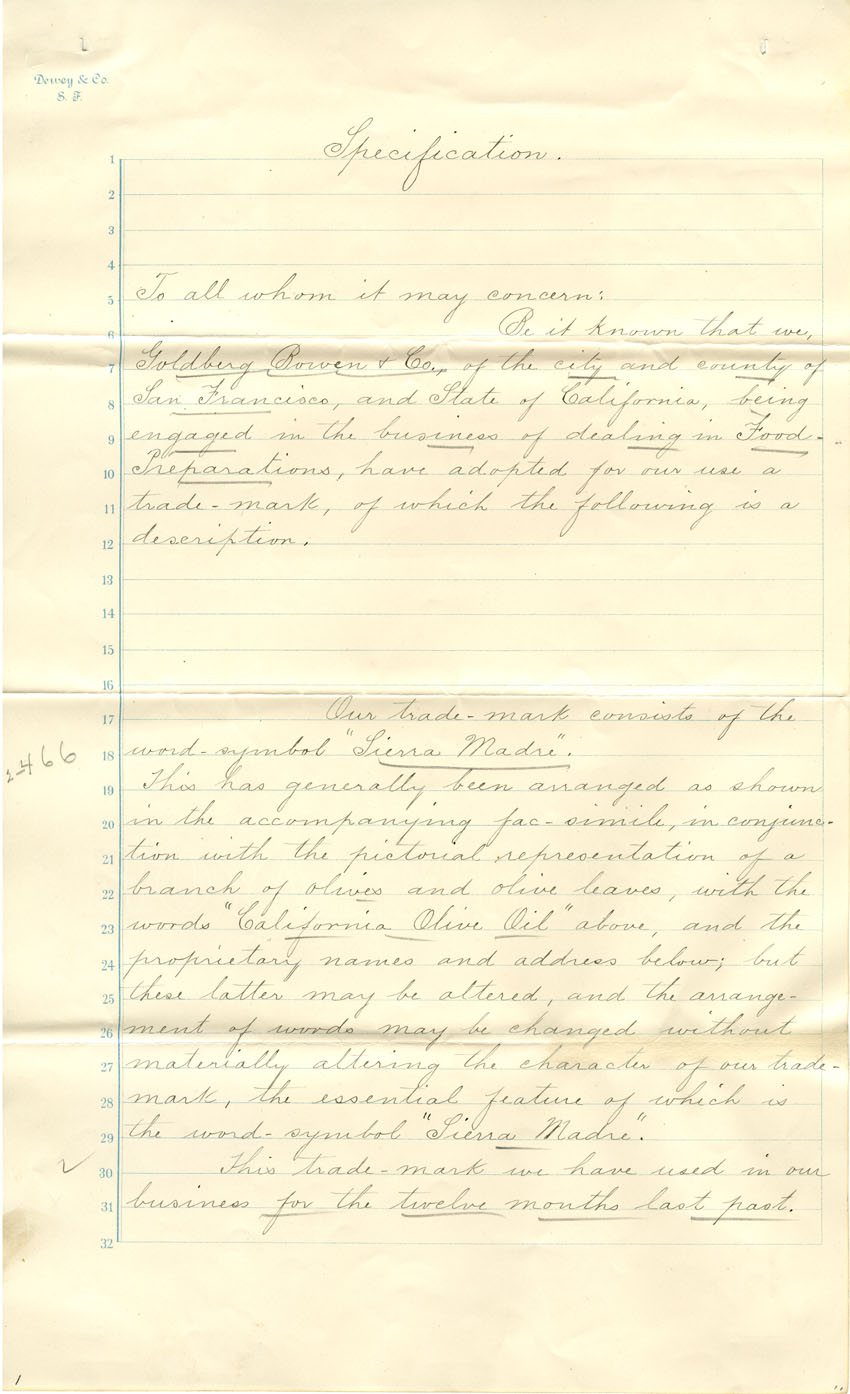 Dewey & Co.
S. F.
Specification.
1
2
3
4
5 To all whom it may concern:
6 Be it known that we,
7 Goldberg Bowen & Co., of the city and county of
8 San Francisco, and State of California, being
9 engaged in the business of dealing in Food-
10 Preparations, have adopted for our use a
11 trade-mark, of which the following is a
12 description.
13
14
15
16
17 Our trade-mark consists of the
18 word-symbol "Sierra Madre".
2-466
19 This has generally been arranged as shown
20 in the accompanying fac-simile, in conjunc-
21 tion with the pictorial representation of a
22 branch of olives and olive leaves, with the
23 words "California Olive Oil" above, and the
24 proprietary names and address below; but
25 these latter may be altered, and the arrange-
26 ment of words may be changed without
27 materially altering the character of our trade-
28 mark, the essential feature of which is
29 the word-symbol "Sierra Madre".
30 This trade-mark we have used in our
31 business for the twelve months last past.
32